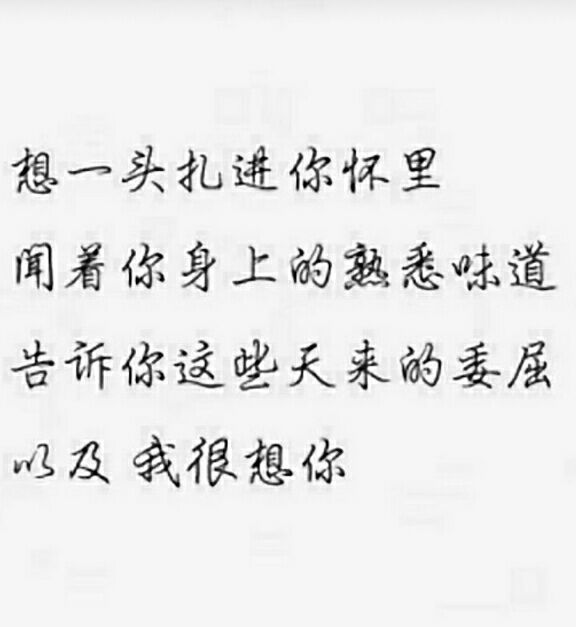 想一头扎进你怀里
闻着你身上的熟悉味道
告诉你这些天来的委屈
以及 我很想你